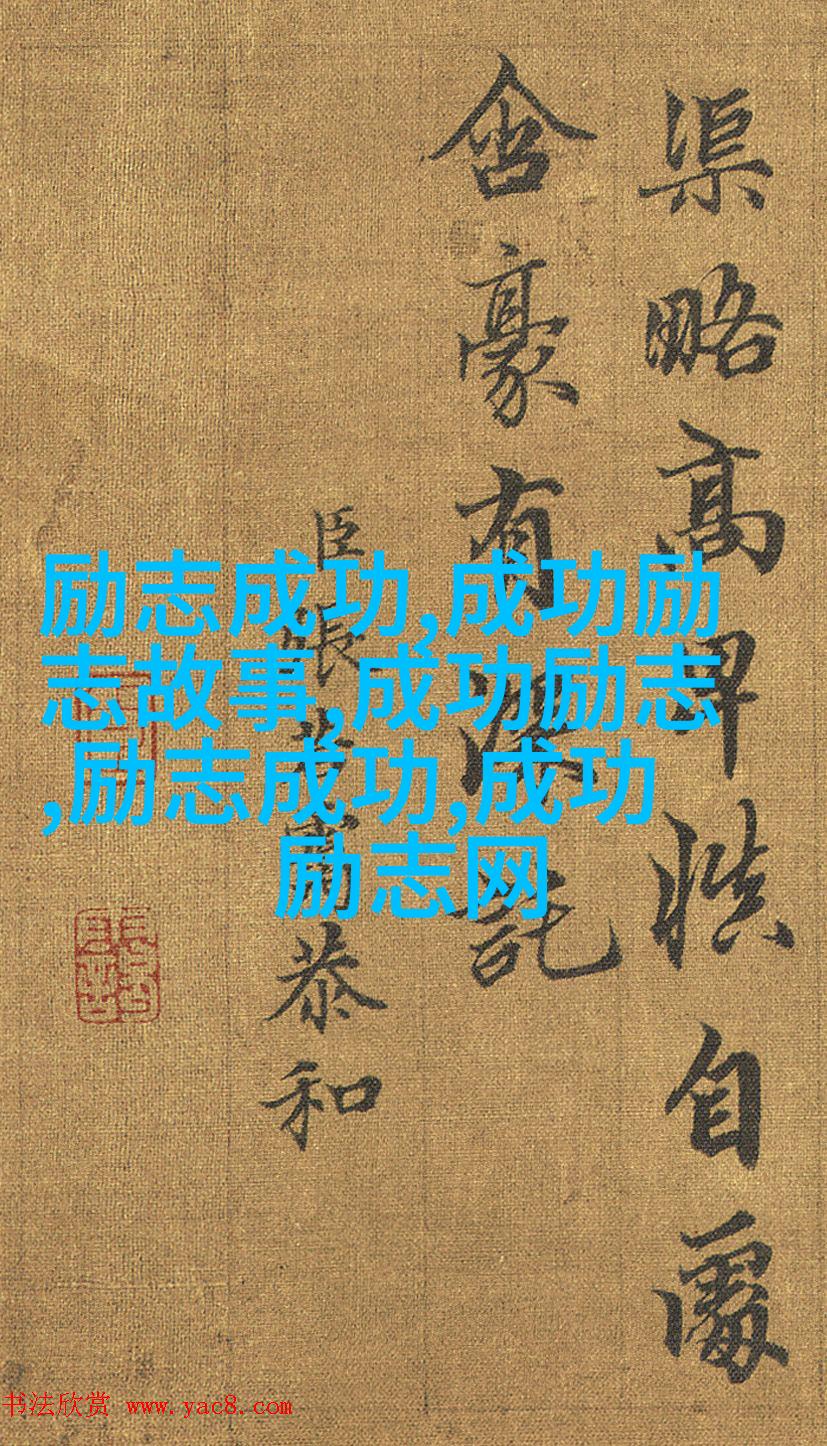 渠略髙卑慎自處
含豪有深託
臣張若靄恭和
励志成功,成功励
志故事,成功励志
,励志成功,成功
励志网
书法欣赏 www.yac8.com